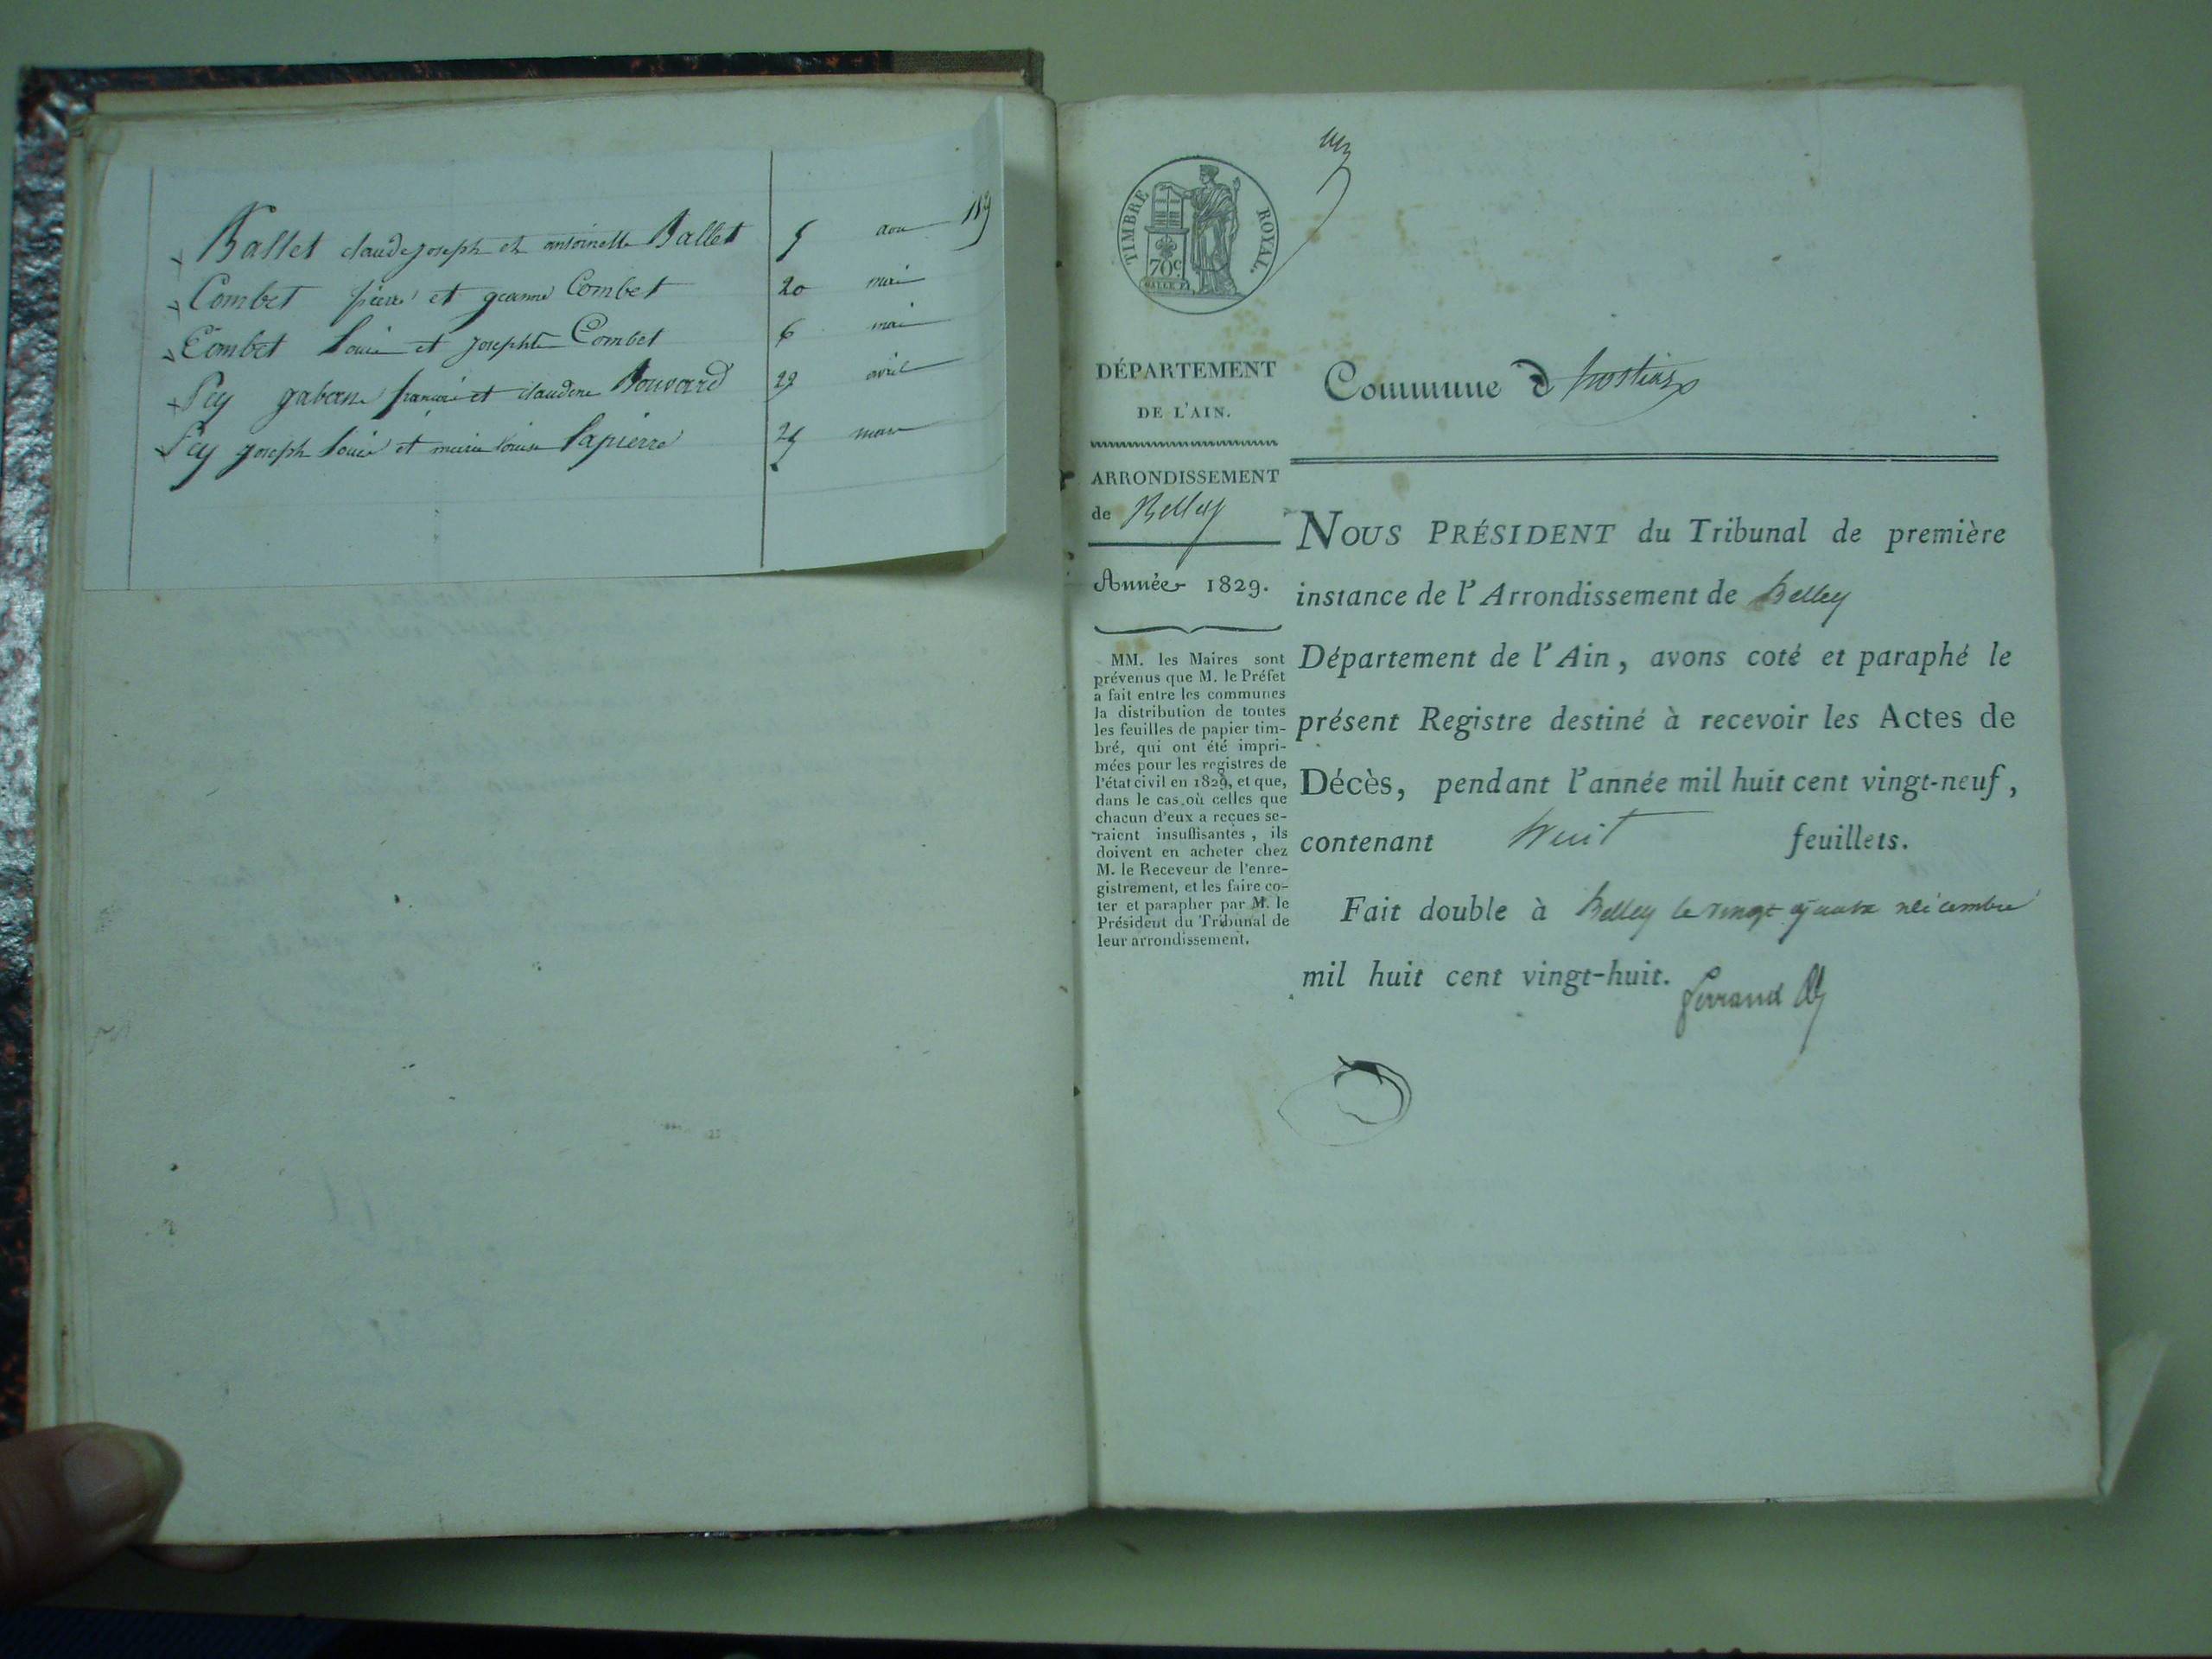 Ballet claude joseph et antoinette Ballet 5 aou
Combet pierre et jeanne Combet 20 mai
Combet Louis et josephte Combet 6 mai
Pey françois et claudine Bouvard 29 avril
Pey joseph Louis et marie Louise Lapierre 25 mars
TIMBRE ROYAL.
70c
DÉPARTEMENT
DE L'AIN.
ARRONDISSEMENT
de Belley
Année 1829.
MM. les Maires sont
prévenus que M. le Préfet
a fait entre les communes
la distribution de toutes
les feuilles de papier tim-
bré, qui ont été impri-
mées pour les registres de
l'état civil en 1829, et que,
dans le cas où celles que
chacun d'eux a reçues se-
raient insuffisantes, ils
doivent en acheter chez
M. le Receveur de l'enre-
gistrement, et les faire co-
ter et parapher par M. le
Président du Tribunal de
leur arrondissement.
Commune d'hostias
NOUS PRÉSIDENT du Tribunal de première
instance de l'Arrondissement de Belley
Département de l'Ain, avons coté et paraphé le
présent Registre destiné à recevoir les Actes de
Décès, pendant l'année mil huit cent vingt-neuf,
contenant huit feuillets.
Fait double à Belley le vingt quatre décembre
mil huit cent vingt-huit.
Ferrand